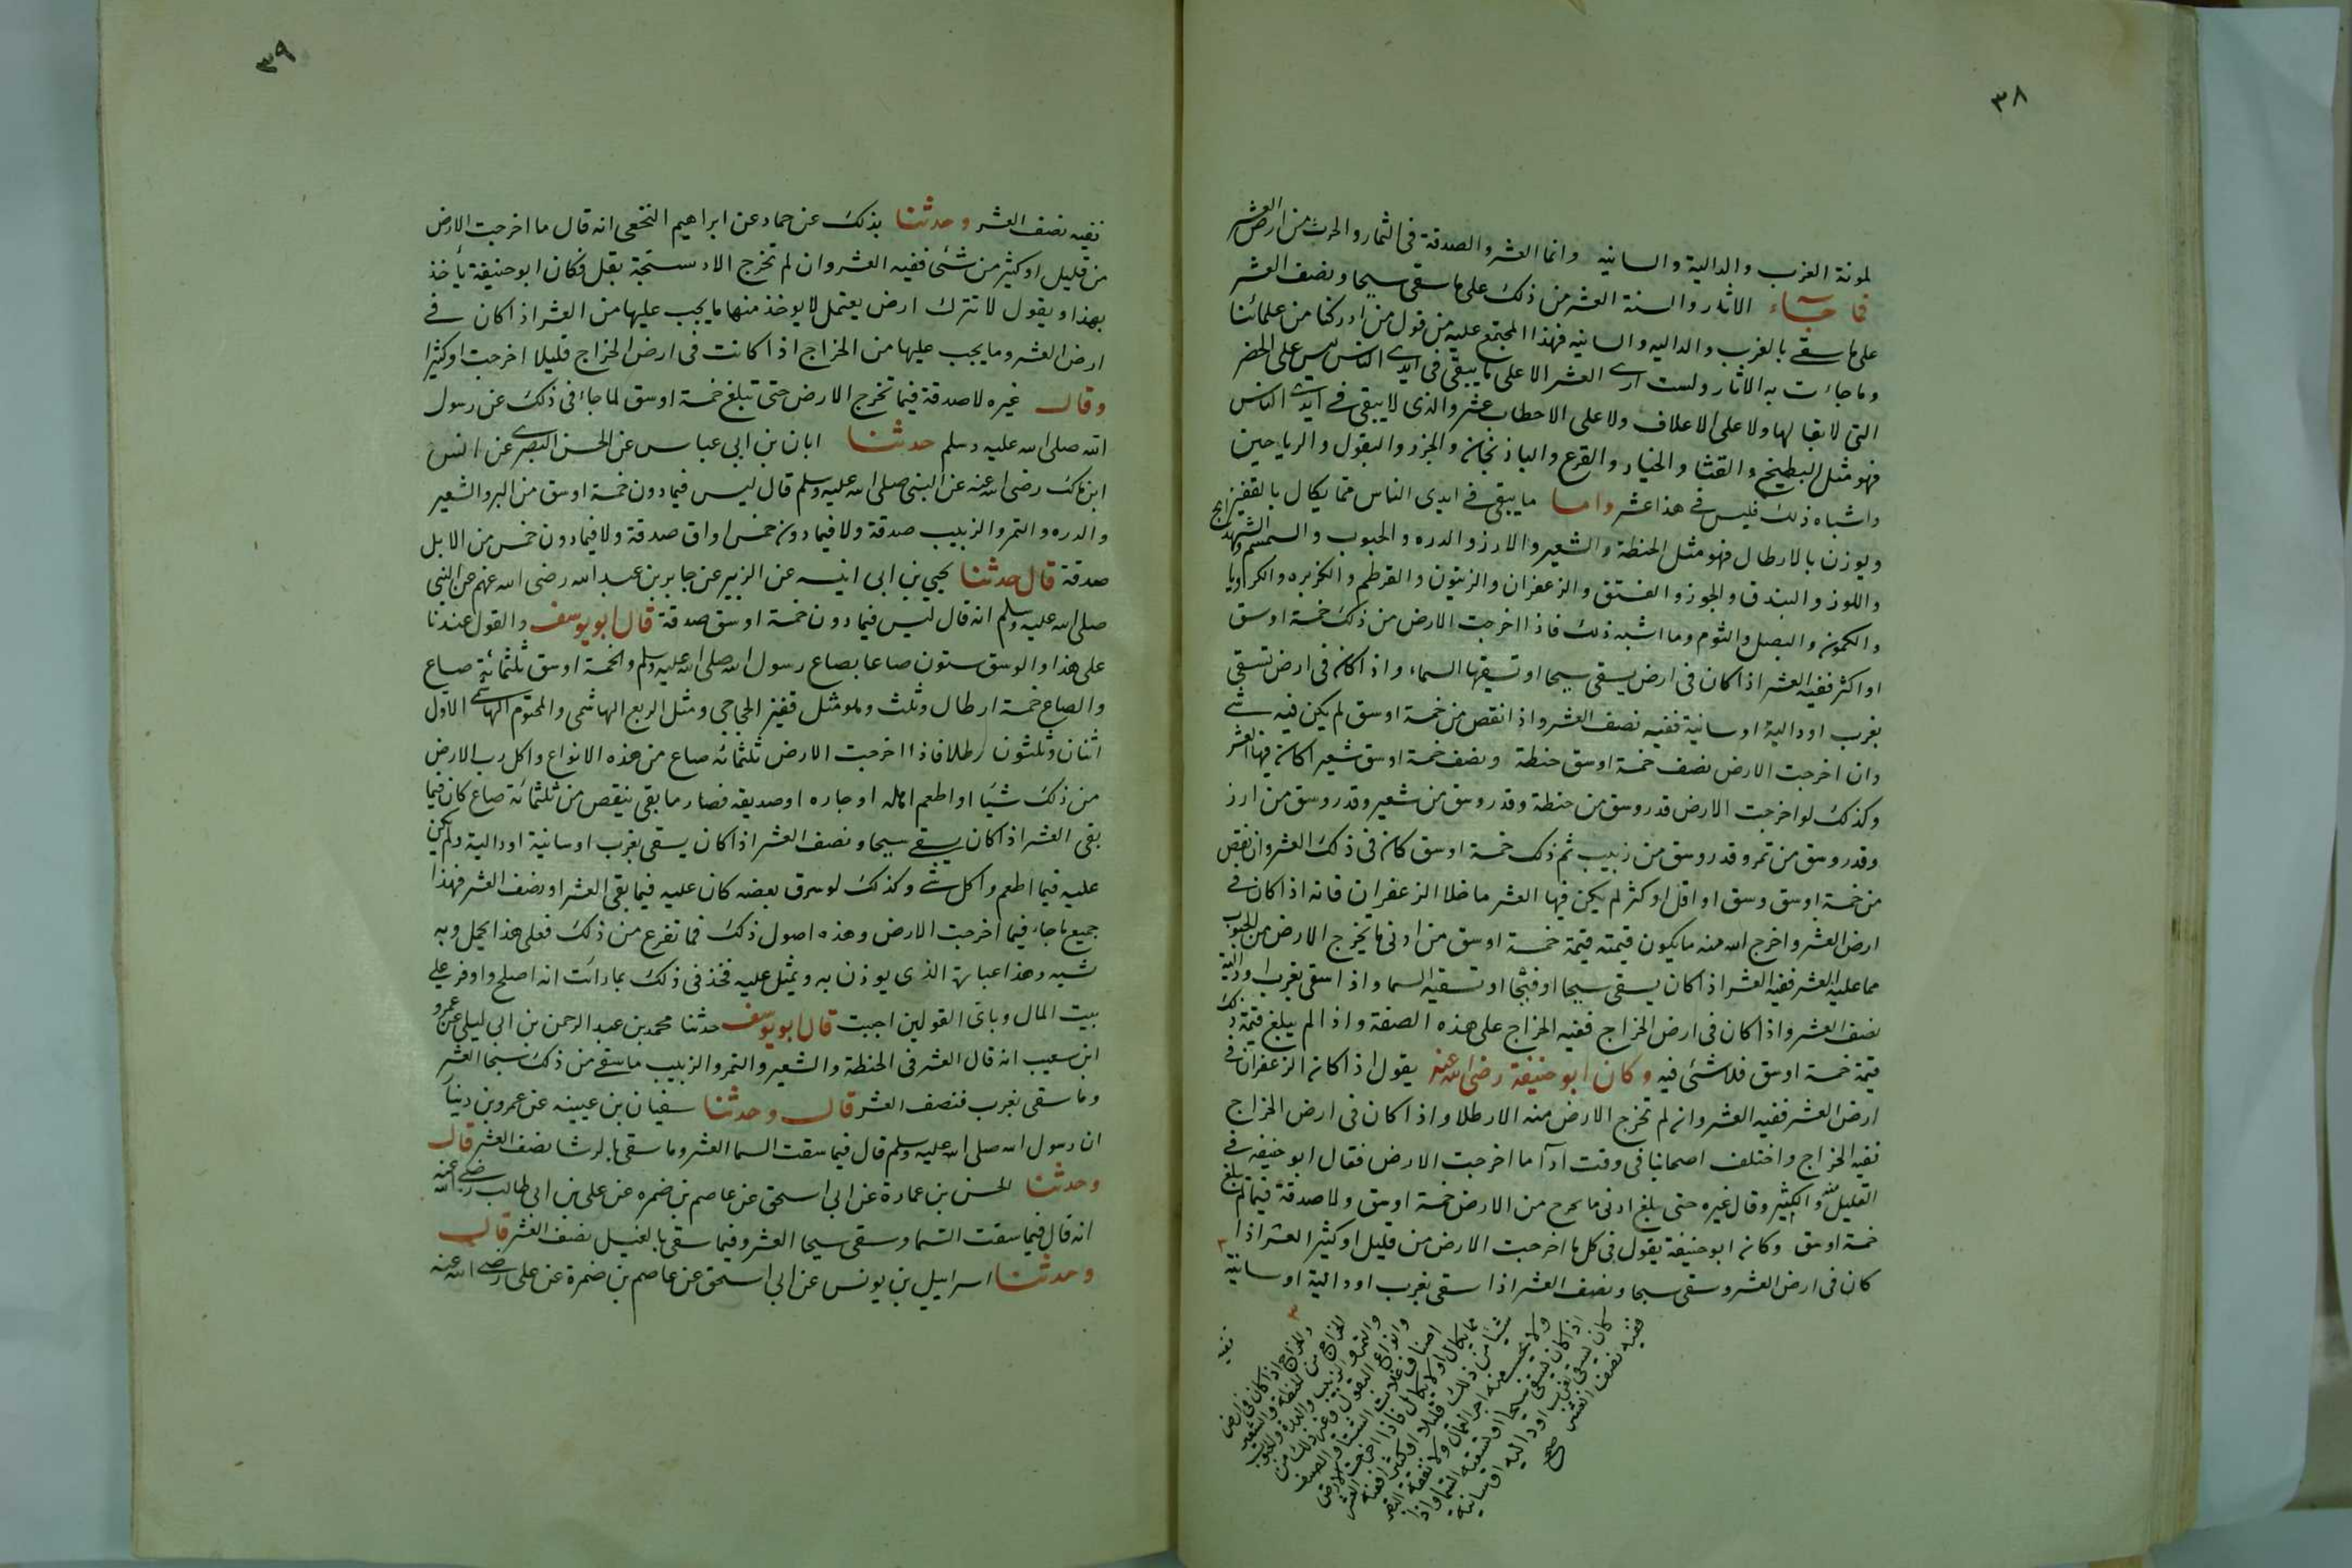 ٣٨
لمونة الغرب والدالية والسانيه وانما العشر والصدقة فى الثمار والحرث من ارض العشر
فما جاء الاثار والسنة العشر من ذلك على ما سقى سيحا ونصف العشر
على ما سقى بالغرب والداليه والسانيه فهذا المجتمع عليه من قول من ادركنا من علمائنا
وما جاءت به الاثار ولست ارى العشر الا على ما يبقى فى ايدى الناس ليس على الخضر
التى لا بقا لها ولا على الاعلاف ولا على الاحطاب عشر والذى لا يبقى فى ايدى الناس
فهو مثل البطيخ والقثا والخيار والقرع والباذنجان والجزر والبقول والرياحين
واشباه ذلك فليس فى هذا عشر واما ما يبقى فى ايدى الناس مما يكال بالقفيز
ويوزن بالارطال فهو مثل الحنطة والشعير والارز والدره والحبوب والسمسم والشهدانج
واللوز والبندق والجوز والفستق والزعفران والزيتون والقرطم والكزبره والكراويا
والكمون والبصل والثوم وما اشبه ذلك فاذا اخرجت الارض من ذلك خمسة اوسق
او اكثر ففيه العشر اذا كان فى ارض يسقى سيحا او تسقيها السماء واذا كان فى ارض تسقى
بغرب او دالية او سانية ففيه نصف العشر واذا نقص من خمسة اوسق لم يكن فيه شى
وان اخرجت الارض نصف خمسة اوسق حنطة ونصف خمسة اوسق شعير اكان فيها العشر
وكذلك لو اخرجت الارض قدر وسق من حنطة وقدر وسق من شعير وقدر وسق من ارز
وقدر وسق من تمر وقدر وسق من زبيب ثم ذلك خمسة اوسق كان فى ذلك العشر وان نقص
من خمسة اوسق وسق او اقل او كثر لم يكن فيها العشر ما خلا الزعفران فانه اذا كان فى
ارض العشر واخرج الله منه ما يكون قيمته قيمة خمسة اوسق من ادنى ما يخرج الارض من الحبوب
مما عليه العشر ففيه العشر اذا كان يسقى سيحا او فتحا او تسقيه السما واذا سقى بغرب او دالية
نصف العشر واذا كان فى ارض الخراج ففيه الخراج على هذه الصفة واذا لم يبلغ قيمة ذلك
قيمة خمسة اوسق فلا شئى فيه وكان ابو حنيفة رضى الله عنه يقول اذا كان الزعفران فى
ارض العشر ففيه العشر وان لم تخرج الارض منه الا رطلا واذا كان فى ارض الخراج
ففيه الخراج واختلف اصحابنا فى وقت اداَ ما اخرجت الارض فقال ابو حنيفه فى
القليل منه والكثير وقال غيره حتى يبلغ ادنى ما يخرج من الارض خمسة اوسق ولا صدقة فيما لم يبلغ
خمسة اوسق وكان ابو حنيفة يقول فى كل ما اخرجت الارض من قليل او كثير العشر اذا ٣
كان فى ارض العشر وسقى سيحا ونصف العشر اذا سقى بغرب او دالية او سانية
٣
والخراج اذا كان فى ارض
الخراج من الحنطة والشعير
والتمر والزبيب والدرة والحبوب
وانواع البقول وغير ذلك من
اصناف غلات الشتا والصيف
مما يكال او لا يكال فاذا اخرجت الارض
شيا من ذلك قليلا او كثيرا ففيه العشر
ولا يحسب منه اجر العمال ولا نفقة البقر
اذا كان يسقى سيحا او تسقيه السما واذا
كان يسقى بغرب او دالية او سانية
ففيه نصف العشر صح
ففيه
٣٩
ففيه نصف العشر وحدثنا بذلك عن حماد عن ابراهيم النخعى انه قال ما اخرجت الارض
من قليل او كثير من شئى ففيه العشر وان لم تخرج الا دستجة بقل فكان ابو حنيفة يأخذ
بهذا ويقول لا تترك ارض يعتمل لا يوخذ منها ما يجب عليها من العشر اذا كان فى
ارض العشر وما يجب عليها من الخراج اذا كانت فى ارض الخراج قليلا اخرجت او كثيرا
وقال غيره لا صدقة فيما تخرج الارض حتى تبلغ خمسة اوسق لما جاء فى ذلك عن رسول
الله صلى الله عليه وسلم حدثنا ابان بن ابى عباس عن الحسن البصرى عن انس
ابن مالك رضى الله عنه عن النبى صلى الله عليه وسلم قال ليس فيما دون خمسة اوسق من البر والشعير
والدره والتمر والزبيب صدقة ولا فيما دون خمس اواق صدقة ولا فيما دون خمس من الابل
صدقة قال حدثنا يحيي بن ابى انيسه عن الزبير عن جابر بن عبد الله رضى الله عنهم عن النبى
صلى الله عليه وسلم انه قال ليس فيما دون خمسة اوسق صدقة قال ابو يوسف والقول عندنا
على هذا والوسق ستون صاعا بصاع رسول الله صلى الله عليه وسلم والخمسة اوسق ثلثمائة صاع
والصاع خمسة ارطال وثلث وهو مثل قفيز الحجاجى ومثل الربع الهاشمى والمختوم الهاشمى الاول
اثنان وثلثون رطلا فاذا اخرجت الارض ثلثمائه صاع من هذه الانواع واكل رب الارض
من ذلك شيًا او اطعم اهله او جاره او صديقه فصار ما بقى ينقص من ثلثمائة صاع كان فيما
بقى العشر اذا كان يسقى سيحا ونصف العشر اذا كان يسقى بغرب او سانية او دالية ولم يكن
عليه فيما اطعم واكل شى وكذلك لو سرق بعضه كان عليه فيما بقى العشر او نصف العشر فهذا
جميع ما جاء فيما اخرجت الارض وهذه اصول ذلك فما تفرع من ذلك فعلى هذا يحمل وبه
يشبه وهذا عباره الذى يوزن به ويمثل عليه فخذ فى ذلك بما رائت انه اصلح واوفر على
بيت المال وباى القولين احببت قال ابو يوسف حدثنا محمد بن عبد الرحمن بن ابى ليلى عن عمرو
ابن سعيب انه قال العشر فى الحنطة والشعير والتمر والزبيب ما سقى من ذلك سيحا العشر
وما سقى بغرب فنصف العشر قال وحدثنا سفيان بن عيينه عن عمرو بن دينا
ان رسول الله صلى الله عليه وسلم قال فيما سقت السما العشر وما سقى بالرشا نصف العشر قال
وحدثنا الحسن بن عمارة عن ابى اسحق عن عاصم بن ضمره عن على بن ابى طالب رضى الله عنه
انه قال فيما سقت السما وسقى سيحا العشر وفيما سقى بالغيل نصف العشر قال
وحدثنا اسراييل بن يونس عن ابى اسحق عن عاصم بن ضمرة عن على رضى الله عنه